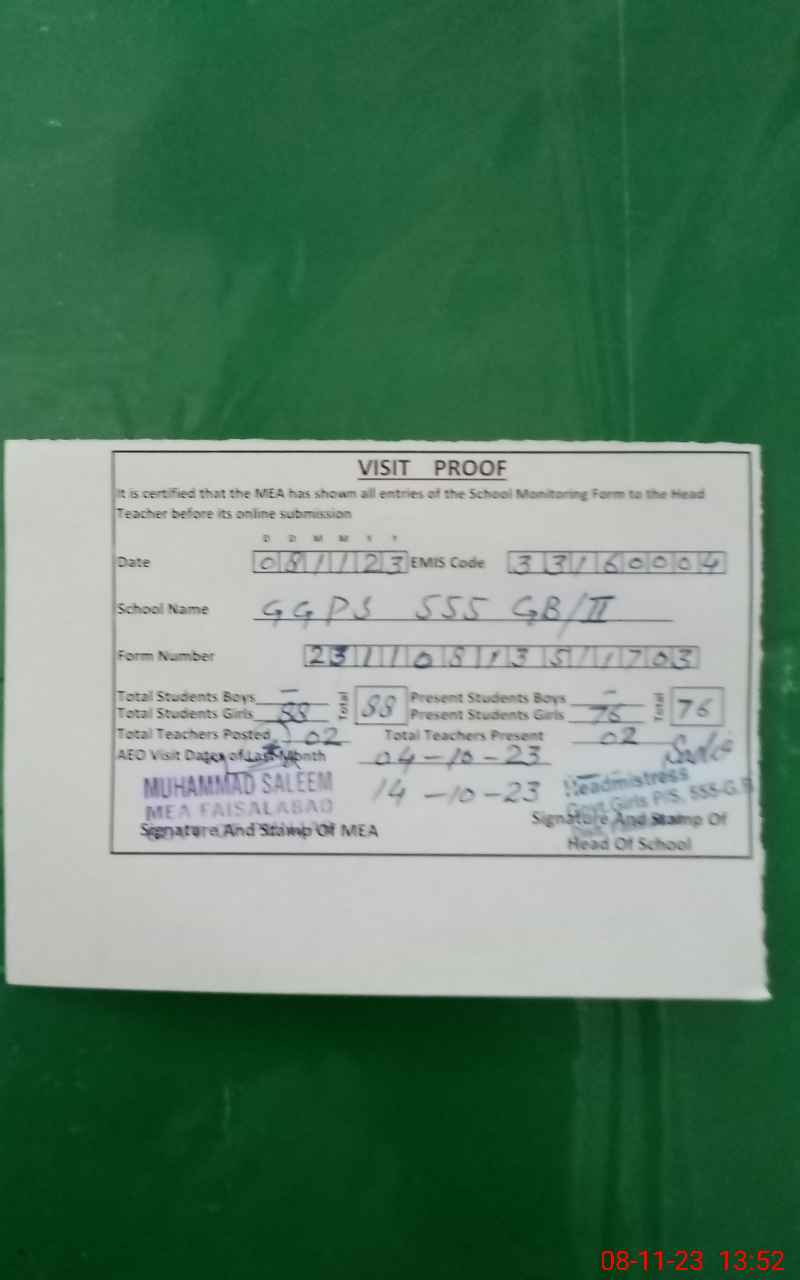 VISIT PROOF
It is certified that the MEA has shown all entries of the School Monitoring Form to the Head
Teacher before its online submission
D D M M Y Y
Date 081123 EMIS Code 33160004
School Name GGPS 555 GB/II
Form Number 23110813511703
Total Students Boys – Total 88 Present Students Boys – Total 76
Total Students Girls 88 Present Students Girls 76
Total Teachers Posted 02 Total Teachers Present 02
AEO Visit Dates of Last Month 04-10-23
14-10-23
MUHAMMAD SALEEM
MEA FAISALABAD
Signature And Stamp Of MEA
Headmistress
Govt. Girls P/S, 555-G.B
Signature And Stamp Of
Head Of School
08-11-23 13:52